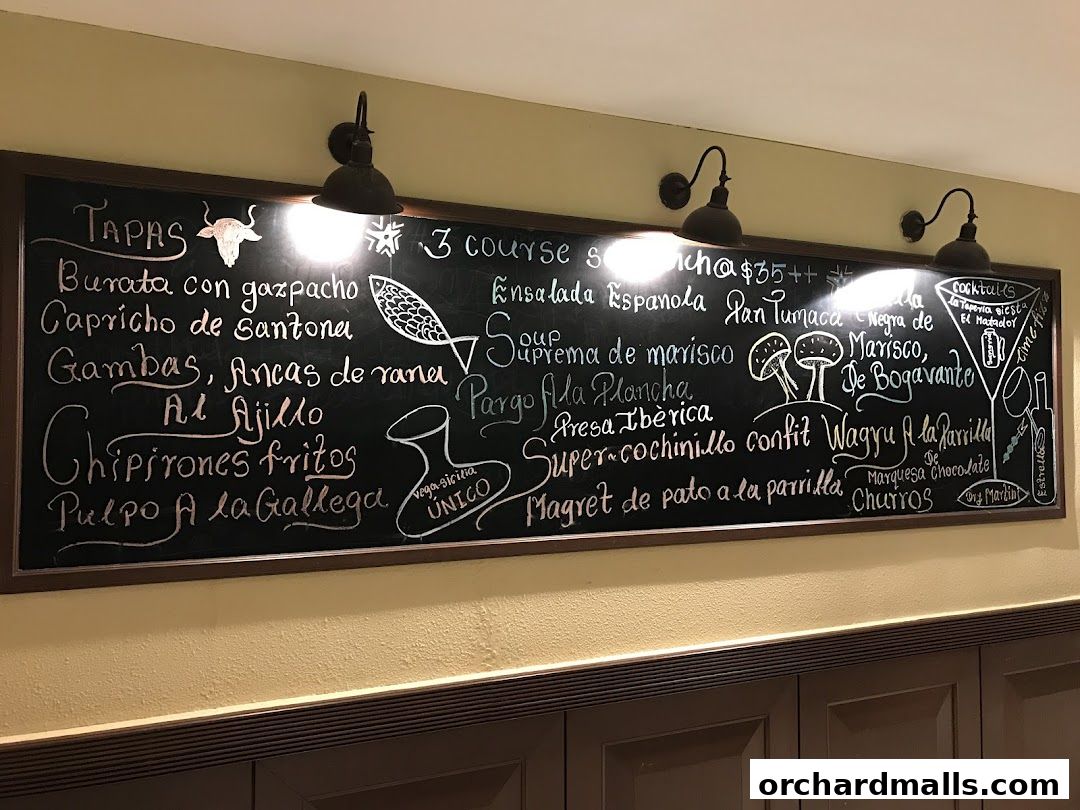 TAPAS
Burata con gazpacho
Capricho de santona
Gambas, Ancas de rana
Al Ajillo
Chipirones fritos
Pulpo A la Gallega
vega-sicilia
ÚNICO
3 course @ $35++
Ensalada Espanola
Soup
Suprema de marisco
Pargo A la Plancha
Presa Ibèrica
Super-cochinillo confit
Magret de pato a la parrilla
Pan Tumaca
Negra de
Marisco,
De Bogavante
Wagyu A la Parrilla
De
Marquesa Chocolate
Churros
cocktails
la Taperia siesta
El Matador
Dry Martini
Estrella
orchardmalls.com